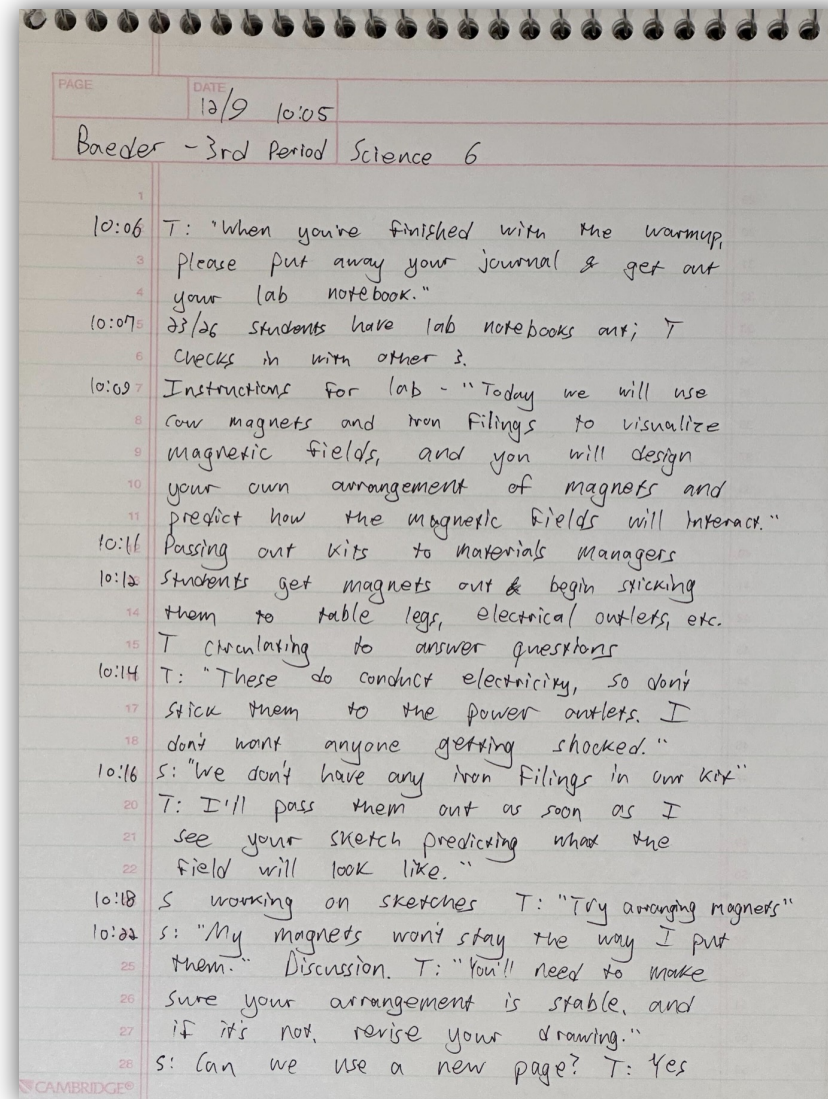 PAGE
DATE
12/9 10:05
Baeder - 3rd Period Science 6
1
10:06 T: "When you're finished with the warmup,
3 please put away your journal & get out
4 your lab notebook."
10:07 5 23/26 students have lab notebooks out; T
6 checks in with other 3.
10:09 7 Instructions for lab - "Today we will use
8 cow magnets and iron filings to visualize
9 magnetic fields, and you will design
10 your own arrangement of magnets and
11 predict how the magnetic fields will interact."
10:11 Passing out kits to materials managers
10:12 Students get magnets out & begin sticking
14 them to table legs, electrical outlets, etc.
15 T circulating to answer questions
10:14 T: "These do conduct electricity, so don't
17 stick them to the power outlets. I
18 don't want anyone getting shocked."
10:16 S: "We don't have any iron filings in our kit"
20 T: I'll pass them out as soon as I
21 see your sketch predicting what the
22 field will look like."
10:18 S working on sketches T: "Try arranging magnets"
10:22 S: "My magnets won't stay the way I put
25 them." Discussion. T: "You'll need to make
26 sure your arrangement is stable, and
27 if it's not, revise your drawing."
28 S: Can we use a new page? T: Yes
CAMBRIDGE®